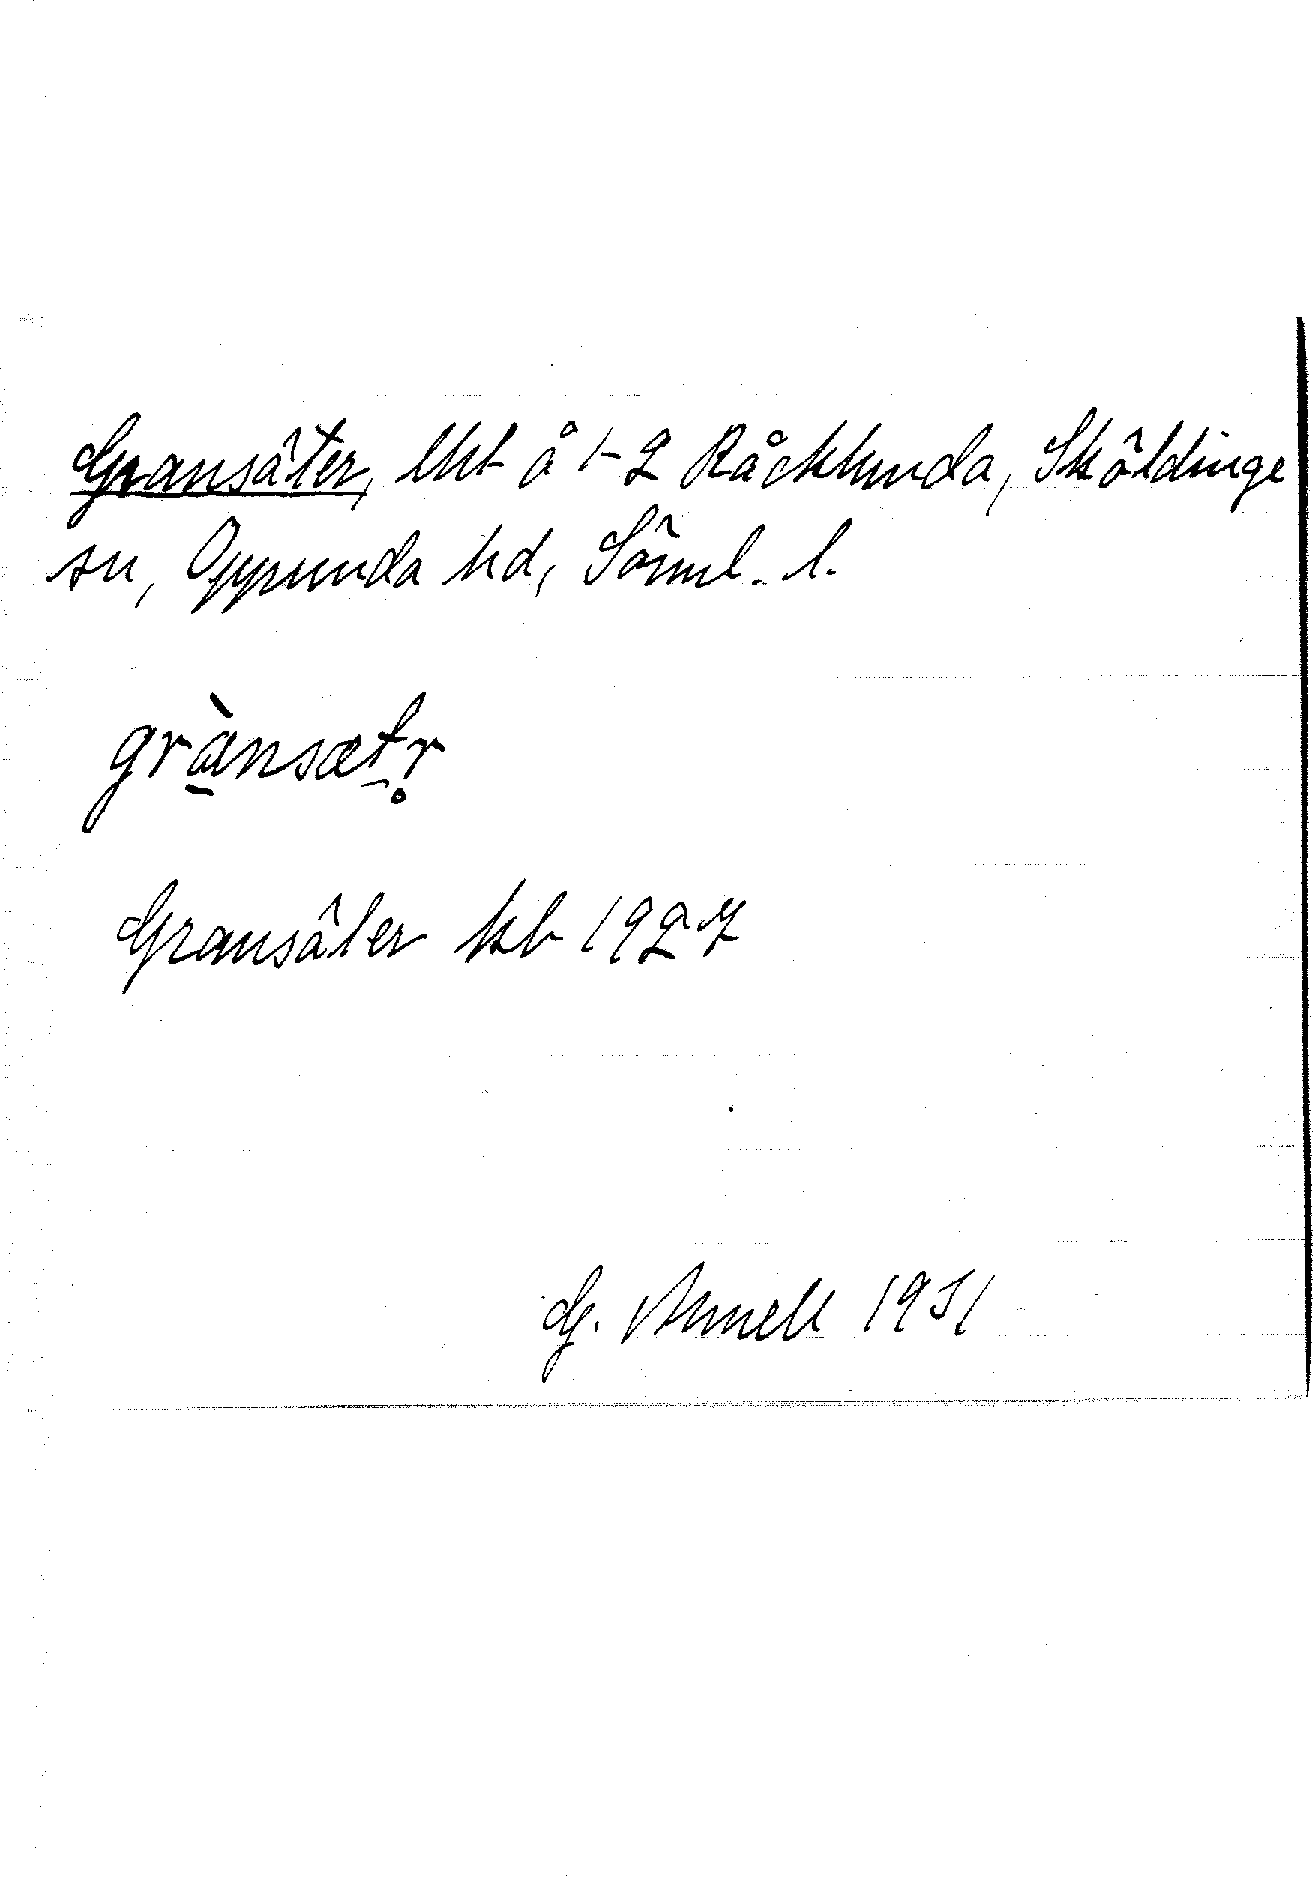 Gransäter, lht å 1-2 Råckhunda, Sköldinge
sn, Oppunda hd, Sörml. l.
grànsætr̥
Gransäter kb 1927
G. Annell 1931